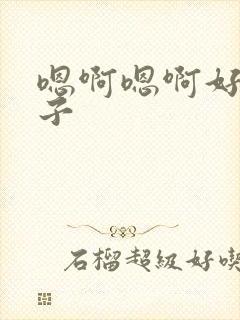 嗯啊嗯啊好
子
石榴超级好喫